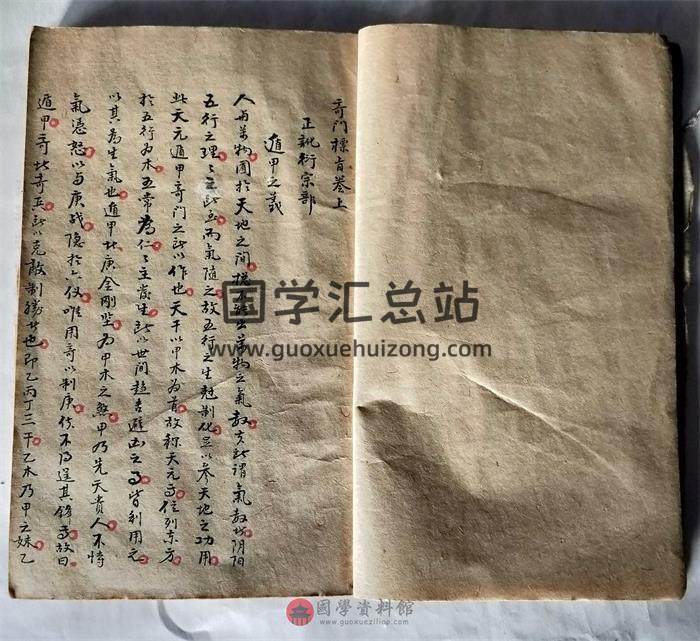 奇門標旨卷上
正訛衍宗部
遁甲之義
人与萬物圄於天地之間 萬物之氣 謂氣 陰阳
五行之理 而氣隨之故五行之生尅制化 以參天地之功用
此天元遁甲奇門之 以作也天干以甲木為首故称天元 位列東方
於五行為木五常為仁 主 生 以世間趋吉避凶之 皆利用元
以其為生氣也遁甲 庚金剛坚为甲木之煞甲乃先天貴人不恃
氣憑怒以与庚战隐於六仪唯用奇以制庚 不 逞其鋒 故曰
遁甲奇 奇 以克敵制勝 也即乙丙丁三干乙木乃甲之妹乙
国学汇总站
www.guoxuehuizong.com
國學資料館
www.guoxueziliao.com